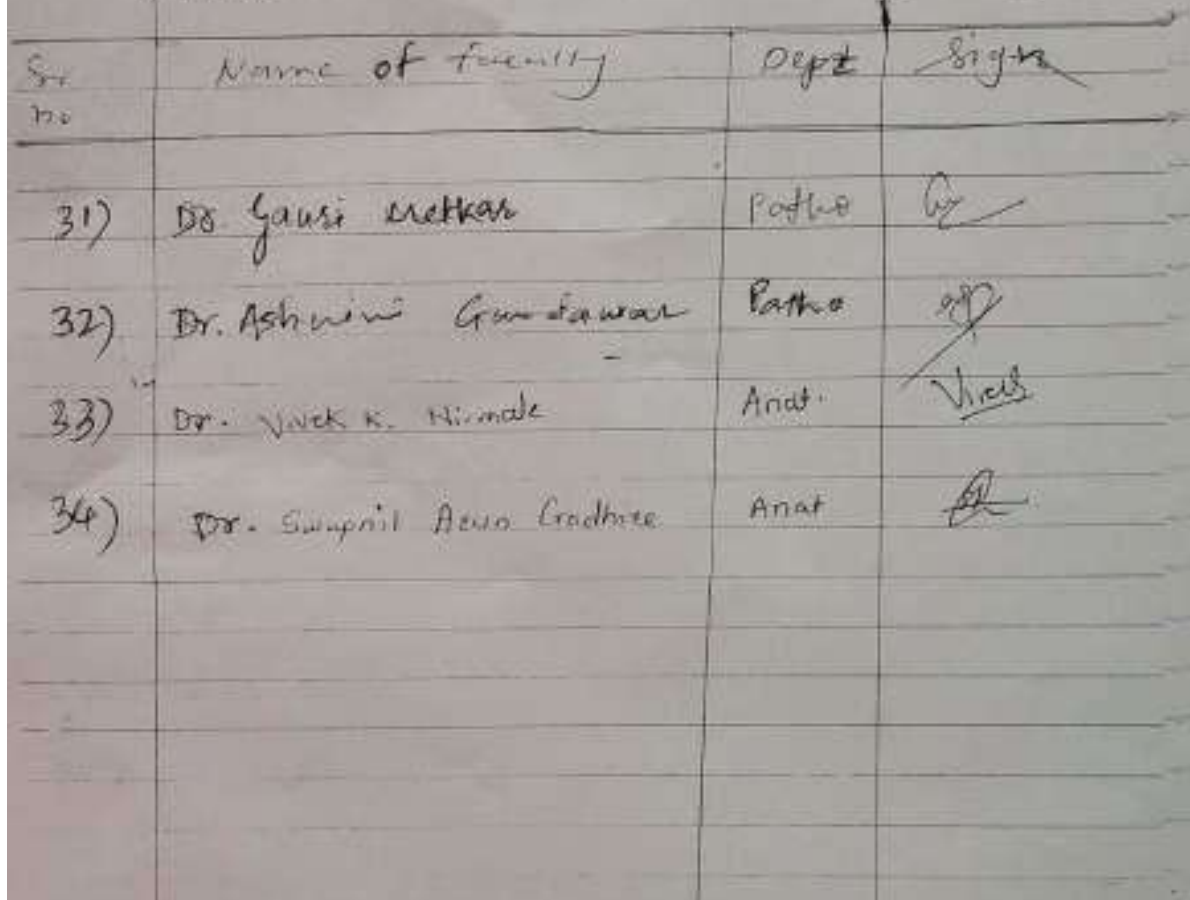 Sr. no Name of faculty Dept Sign
31) Dr. Gauri Metkar Patho
32) Dr. Ashwini Gundawar Patho
33) Dr. Vivek K. Nirmale Anat. Vivek
34) Dr. Swapnil Arun Anat